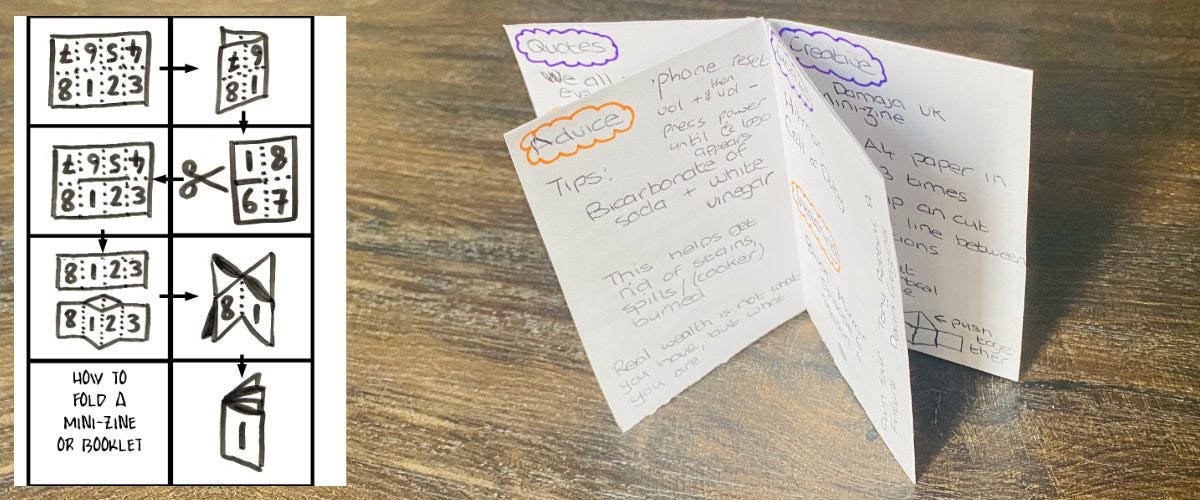 7 6 5 4
8 1 2 3
7 6
8 1
7 6 5 4
8 1 2 3
1 8
6 7
8 1 2 3
8 1 2 3
8 1
HOW TO
FOLD A
MINI-ZINE
OR BOOKLET
1
Quotes
We all
Advice
iphone reset
vol + & vol -
then
press power
until logo
appears
Tips:
Bicarbonate of
soda + white
vinegar
This helps get
rid of stains,
spills/(cooker)
burned
Real wealth is not what
you have, but what
you are,
Creative
Damaja UK
mini-zine
A4 paper in
3 times
an cut
line between
push
toge
ther